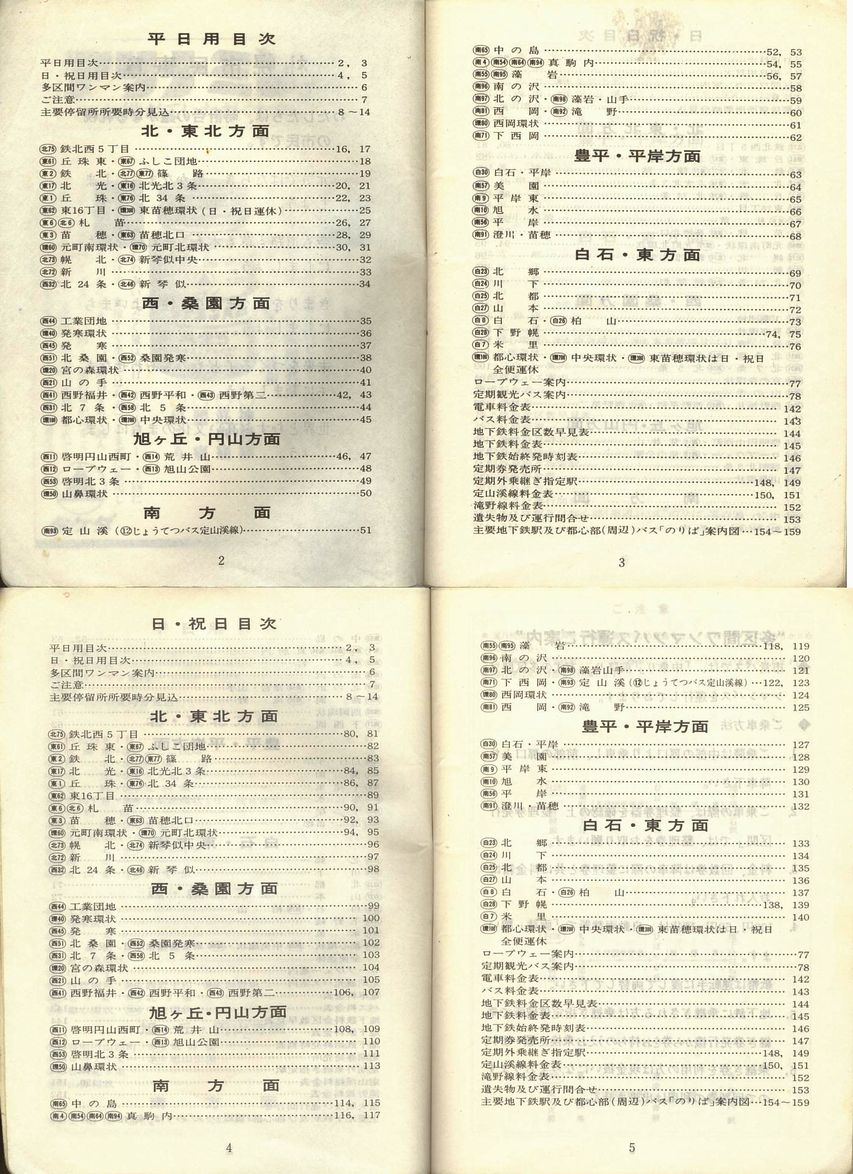 平日用目次
平日用目次…………2, 3
日・祝日用目次…………4, 5
多区間ワンマン案内…………6
ご注意…………7
主要停留所所要時分見込…………8～14
北・東北方面
(北75) 鉄北西5丁目…………16, 17
(東61) 丘珠東・(東67) ふしこ団地…………18
(東2) 鉄北・(北77)(東77) 篠路…………19
(東17) 北光・(東16) 北光北3条…………20, 21
(東1) 丘珠・(東76) 北34条…………22, 23
(東62) 東16丁目・(環88) 東苗穂環状(日・祝日運休)…………25
(東6)(北6) 札苗…………26, 27
(東3) 苗穂・(東63) 苗穂北口…………28, 29
(環60) 元町南環状・(環70) 元町北環状…………30, 31
(北73) 幌北・(北74) 新琴似中央…………32
(北72) 新川…………33
(西82) 北24条・(北46) 新琴似…………34
西・桑園方面
(西44) 工業団地…………35
(環40) 発寒環状…………36
(西45) 発寒…………37
(西51) 北桑園・(西52) 桑園発寒…………38
(環20) 宮の森環状…………40
(西21) 山の手…………41
(西41) 西野福井・(西42) 西野平和・(西43) 西野第二…………42, 43
(西31) 北7条・(西58) 北5条…………44
都心環状・中央環状…………45
旭ヶ丘・円山方面
(西11) 啓明円山西町・(西14) 荒井山…………46, 47
(西12) ロープウェー・(西13) 旭山公園…………48
(西53) 啓明北3条…………49
(環50) 山鼻環状…………50
南方面
(南93) 定山渓(⑫じょうてつバス定山渓線)…………51
2
(南65) 中の島…………52, 53
(南4)(南54)(南64)(南94) 真駒内…………54, 55
(南55)(南95) 藻岩…………56, 57
(南96) 南の沢…………58
(南97) 北の沢・(南98) 藻岩・山手…………59
(南81) 西岡・(南92) 滝野…………60
(環80) 西岡環状…………61
(南71) 下西岡…………62
豊平・平岸方面
(白30) 白石・平岸…………63
(南57) 美園…………64
(南9) 平岸東…………65
(南10) 旭水…………66
(南56) 平岸…………67
(南91) 澄川・苗穂…………68
白石・東方面
(白23) 北郷…………69
(白24) 川下…………70
(白25) 北都…………71
(白27) 山本…………72
(白8) 白石・(白26) 柏山…………73
(白28) 下野幌…………74, 75
(白7) 米里…………76
都心環状・中央環状・東苗穂環状は日・祝日
全便運休
ロープウェー案内…………77
定期観光バス案内…………78
電車料金表…………142
バス料金表…………143
地下鉄料金区数早見表…………144
地下鉄料金表…………145
地下鉄始終発時刻表…………146
定期券発売所…………147
定期外乗継ぎ指定駅…………148, 149
定山渓線料金表…………150, 151
滝野線料金表…………152
遺失物及び運行問合せ…………153
主要地下鉄駅及び都心部(周辺)バス「のりば」案内図…154～159
3
日・祝日目次
平日用目次…………2, 3
日・祝日用目次…………4, 5
多区間ワンマン案内…………6
ご注意…………7
主要停留所所要時分見込…………8～14
北・東北方面
(北75) 鉄北西5丁目…………80, 81
(東61) 丘珠東・(東67) ふしこ団地…………82
(東2) 鉄北・(北77)(東77) 篠路…………83
(東17) 北光・(東16) 北光北3条…………84, 85
(東1) 丘珠・(東76) 北34条…………86, 87
(東62) 東16丁目…………89
(東6)(北6) 札苗…………90, 91
(東3) 苗穂・(東63) 苗穂北口…………92, 93
(環60) 元町南環状・(環70) 元町北環状…………94, 95
(北73) 幌北・(北74) 新琴似中央…………96
(北72) 新川…………97
(西82) 北24条・(北46) 新琴似…………98
西・桑園方面
(西44) 工業団地…………99
(環40) 発寒環状…………100
(西45) 発寒…………101
(西51) 北桑園・(西52) 桑園発寒…………102
(西31) 北7条・(西58) 北5条…………103
(環20) 宮の森環状…………104
(西21) 山の手…………105
(西41) 西野福井・(西42) 西野平和・(西43) 西野第二…………106, 107
旭ヶ丘・円山方面
(西11) 啓明円山西町・(西14) 荒井山…………108, 109
(西12) ロープウェー・(西13) 旭山公園…………110
(西53) 啓明北3条…………111
(環50) 山鼻環状…………113
南方面
(南65) 中の島…………114, 115
(南4)(南54)(南64)(南94) 真駒内…………116, 117
4
(南55)(南95) 藻岩…………118, 119
(南96) 南の沢…………120
(南97) 北の沢・(南98) 藻岩山手…………121
(南71) 下西岡・(南93) 定山渓(⑫じょうてつバス定山渓線)…122, 123
(環80) 西岡環状…………124
(南81) 西岡・(南92) 滝野…………125
豊平・平岸方面
(白30) 白石・平岸…………127
(南57) 美園…………128
(南9) 平岸東…………129
(南10) 旭水…………130
(南56) 平岸…………131
(南91) 澄川・苗穂…………132
白石・東方面
(白23) 北郷…………133
(白24) 川下…………134
(白25) 北都…………135
(白27) 山本…………136
(白8) 白石・(白26) 柏山…………137
(白28) 下野幌…………138, 139
(白7) 米里…………140
都心環状・中央環状・東苗穂環状は日・祝日
全便運休
ロープウェー案内…………77
定期観光バス案内…………78
電車料金表…………142
バス料金表…………143
地下鉄料金区数早見表…………144
地下鉄料金表…………145
地下鉄始終発時刻表…………146
定期券発売所…………147
定期外乗継ぎ指定駅…………148, 149
定山渓線料金表…………150, 151
滝野線料金表…………152
遺失物及び運行問合せ…………153
主要地下鉄駅及び都心部(周辺)バス「のりば」案内図…154～159
5